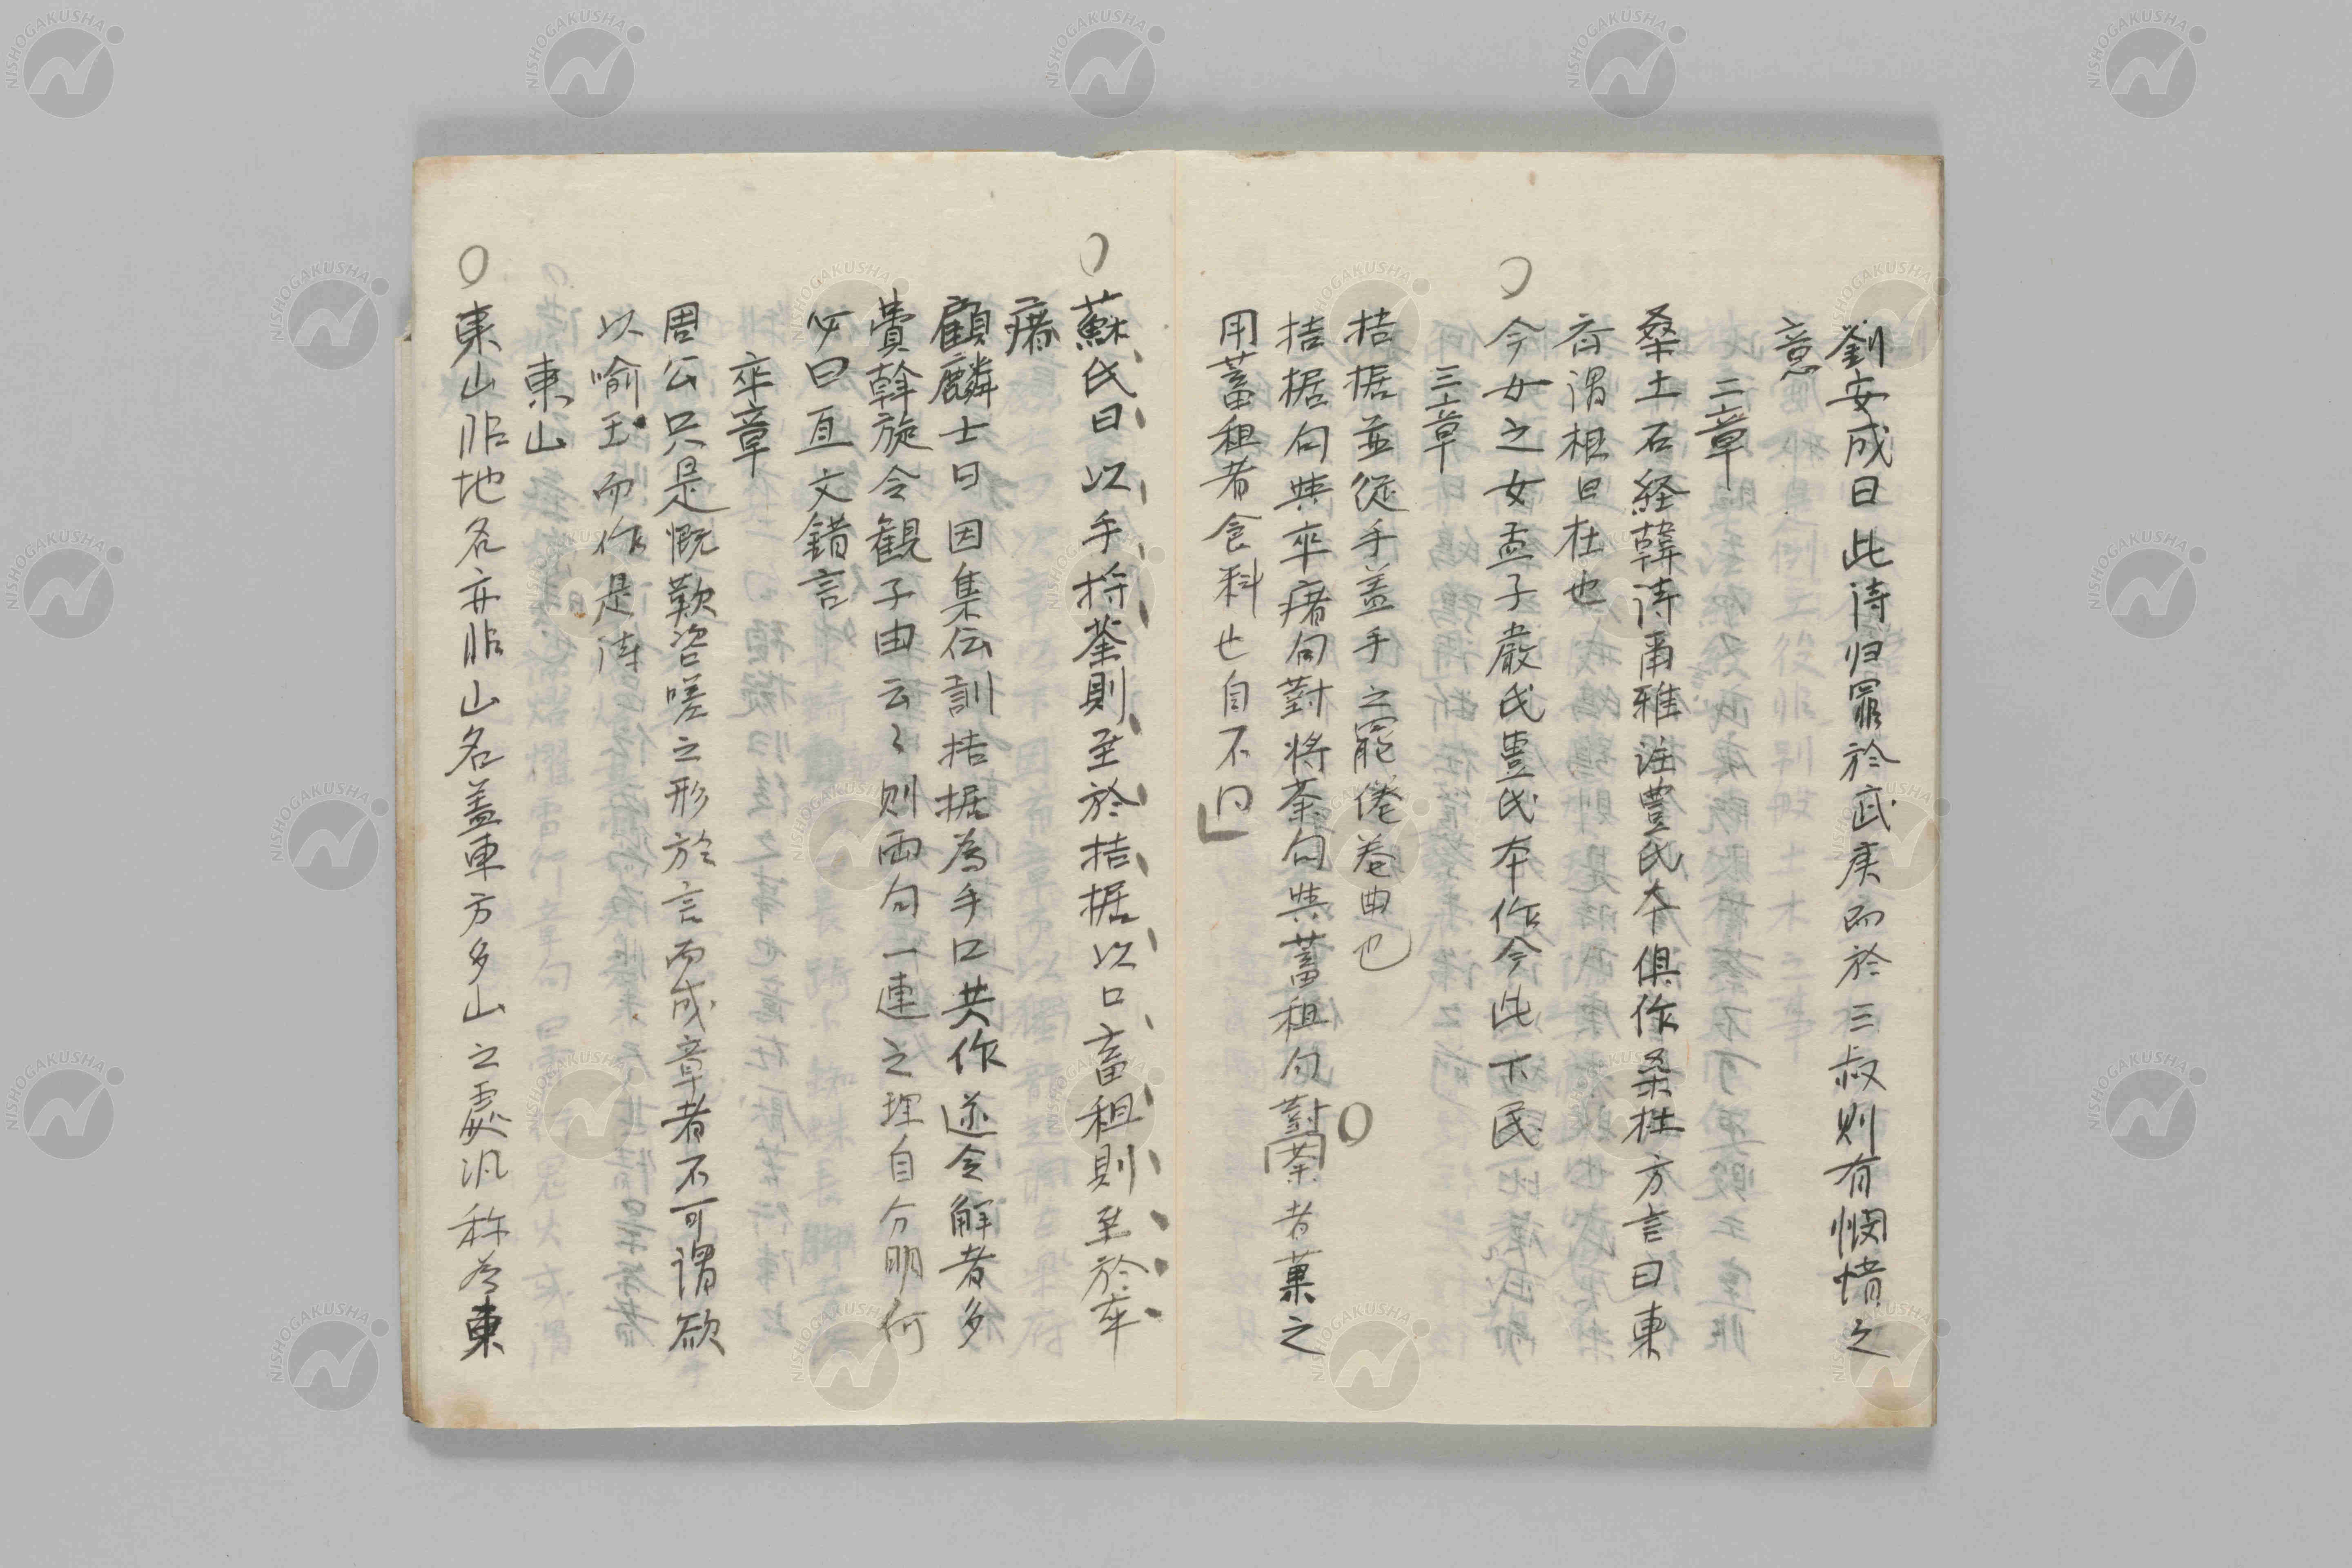 劉安成曰此詩归罪於武庚而於三叔則有憫惜之
意
二章
桑土石経韓詩爾雅注豊氏本俱作桑杜方言曰東
斉謂根曰杜也
○今女之女孟子嚴氏豊氏本作今此下民
三章
拮据並從手蓋手之罷倦卷曲也○
拮据句與卒瘏句對捋荼句與蓄租句對荼者菓之
用蓄租者食料也自不同」
○蘇氏曰以手捋荼則至於拮据以口畜租則至於卒
瘏
顧麟士曰因集伝訓拮据為手口共作遂令解者多
費斡旋今觀子由云々則両句一連之理自分明何
必曰互文錯言
卒章
周公只是慨歎咨嗟之形於言而成章者不可謂欲
以喻王而作是詩
東山
○東山非地名亦非山名蓋東方多山之處汎称為東
NISHOGAKUSHA